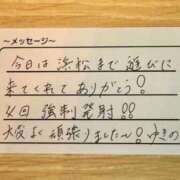 ～メッセージ～
今日は浜松まで遊びに
来てくれてありがとう!
4回強制発射!!
大変よく頑張りました～! ゆきの